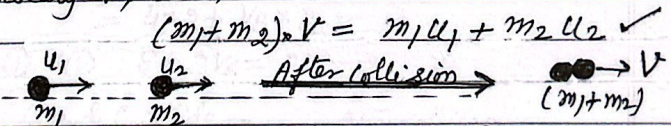 (m1+m2)·V = m1u1 + m2u2 ✓
u1 u2 After Collision V
m1 m2 (m1+m2)